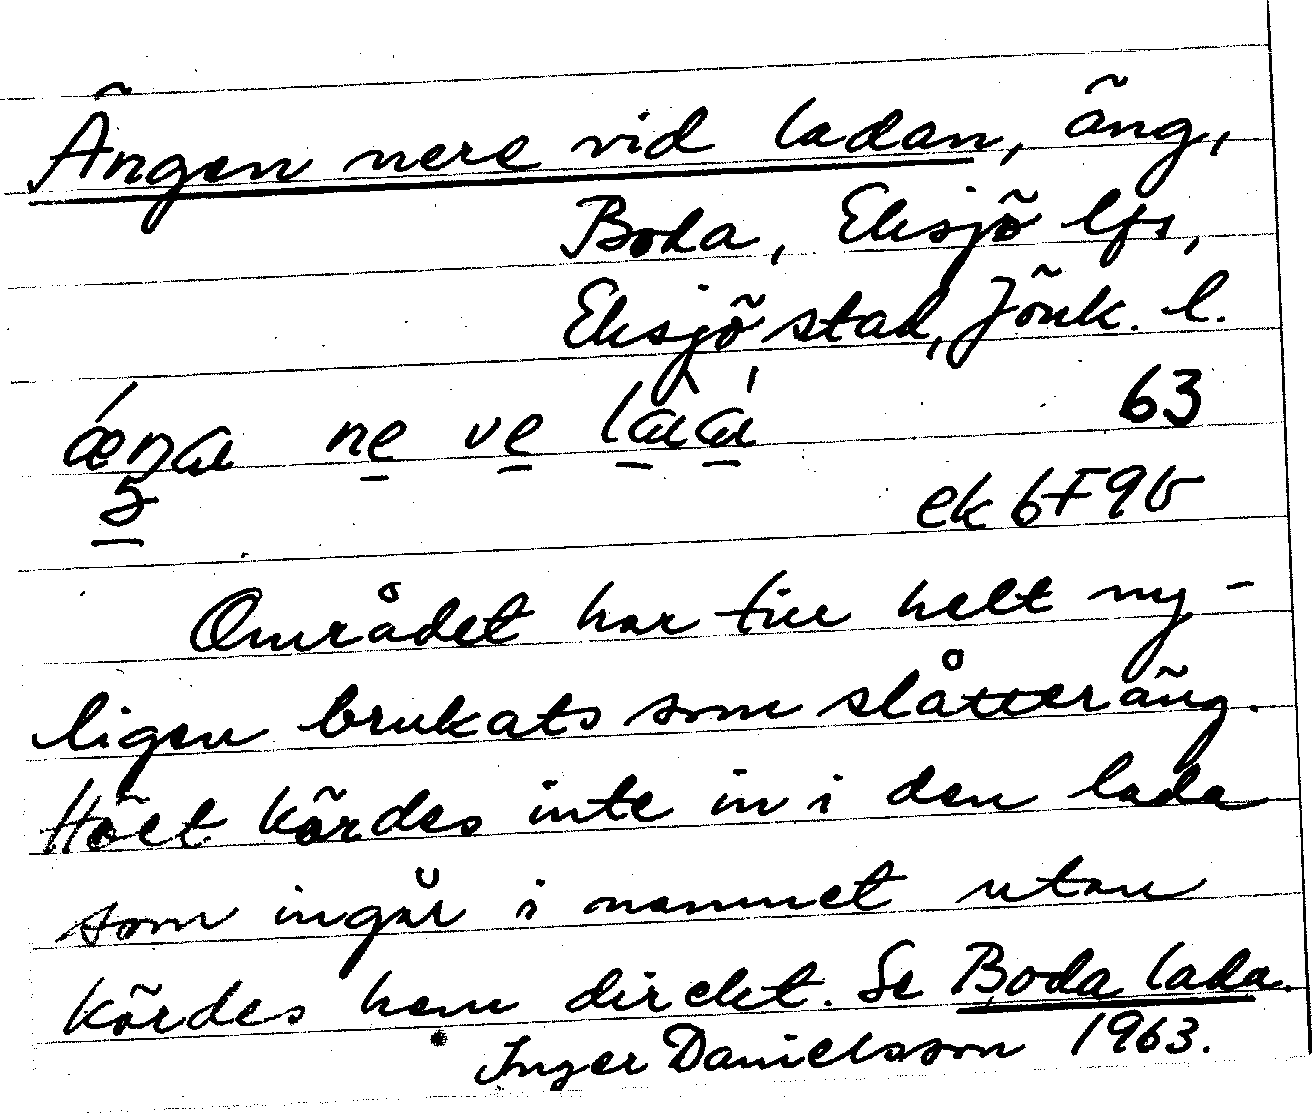 Ängen nere vid ladan, äng,
Boda, Eksjö lfs,
Eksjö stad, Jönk. l.
63
ek 6F9b
Området har till helt ny-
ligen brukats som slåtteräng.
Höet kördes inte in i den lada
som ingår i namnet utan
kördes hem direkt. Se Boda lada.
Inger Danielsson 1963.